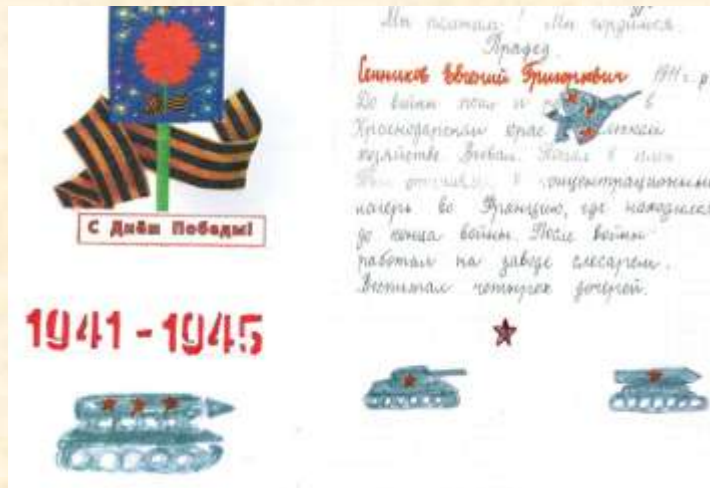 С Днём Победы!
1941 - 1945
Мы помним! Мы гордимся.
Прадед
Сенников Евгений Григорьевич 1911 г. р.
До войны жил и в
Краснодарском крае
хозяйстве. Воевал. Попал в плен
концентрационный
лагерь во Францию, где находился
до конца войны. После войны
работал на заводе слесарем.
Воспитал четырёх дочерей.